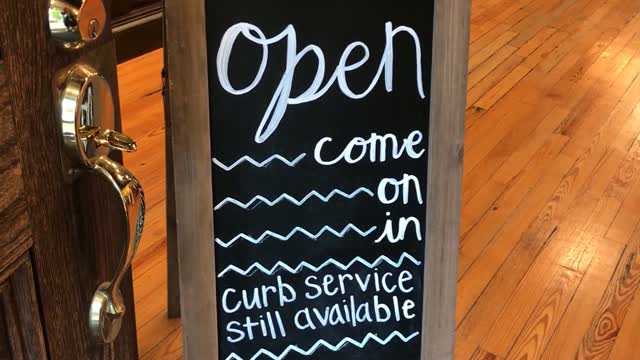 open
come
on
in
curb service
still available